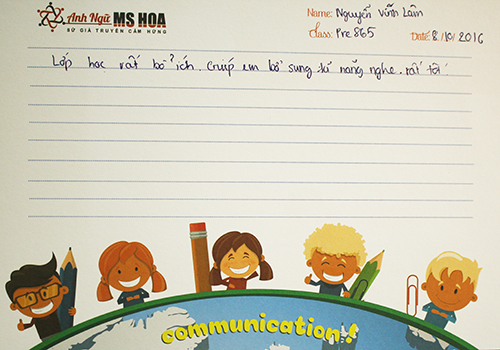 Anh Ngữ MS HOA
SỨ GIẢ TRUYỀN CẢM HỨNG
Name: Nguyễn Vĩnh Lâm
Class: Pre 865
Date: 8/10/2016
Lớp học rất bổ ích. Giúp em bổ sung kĩ năng nghe. rất tốt.
communication!